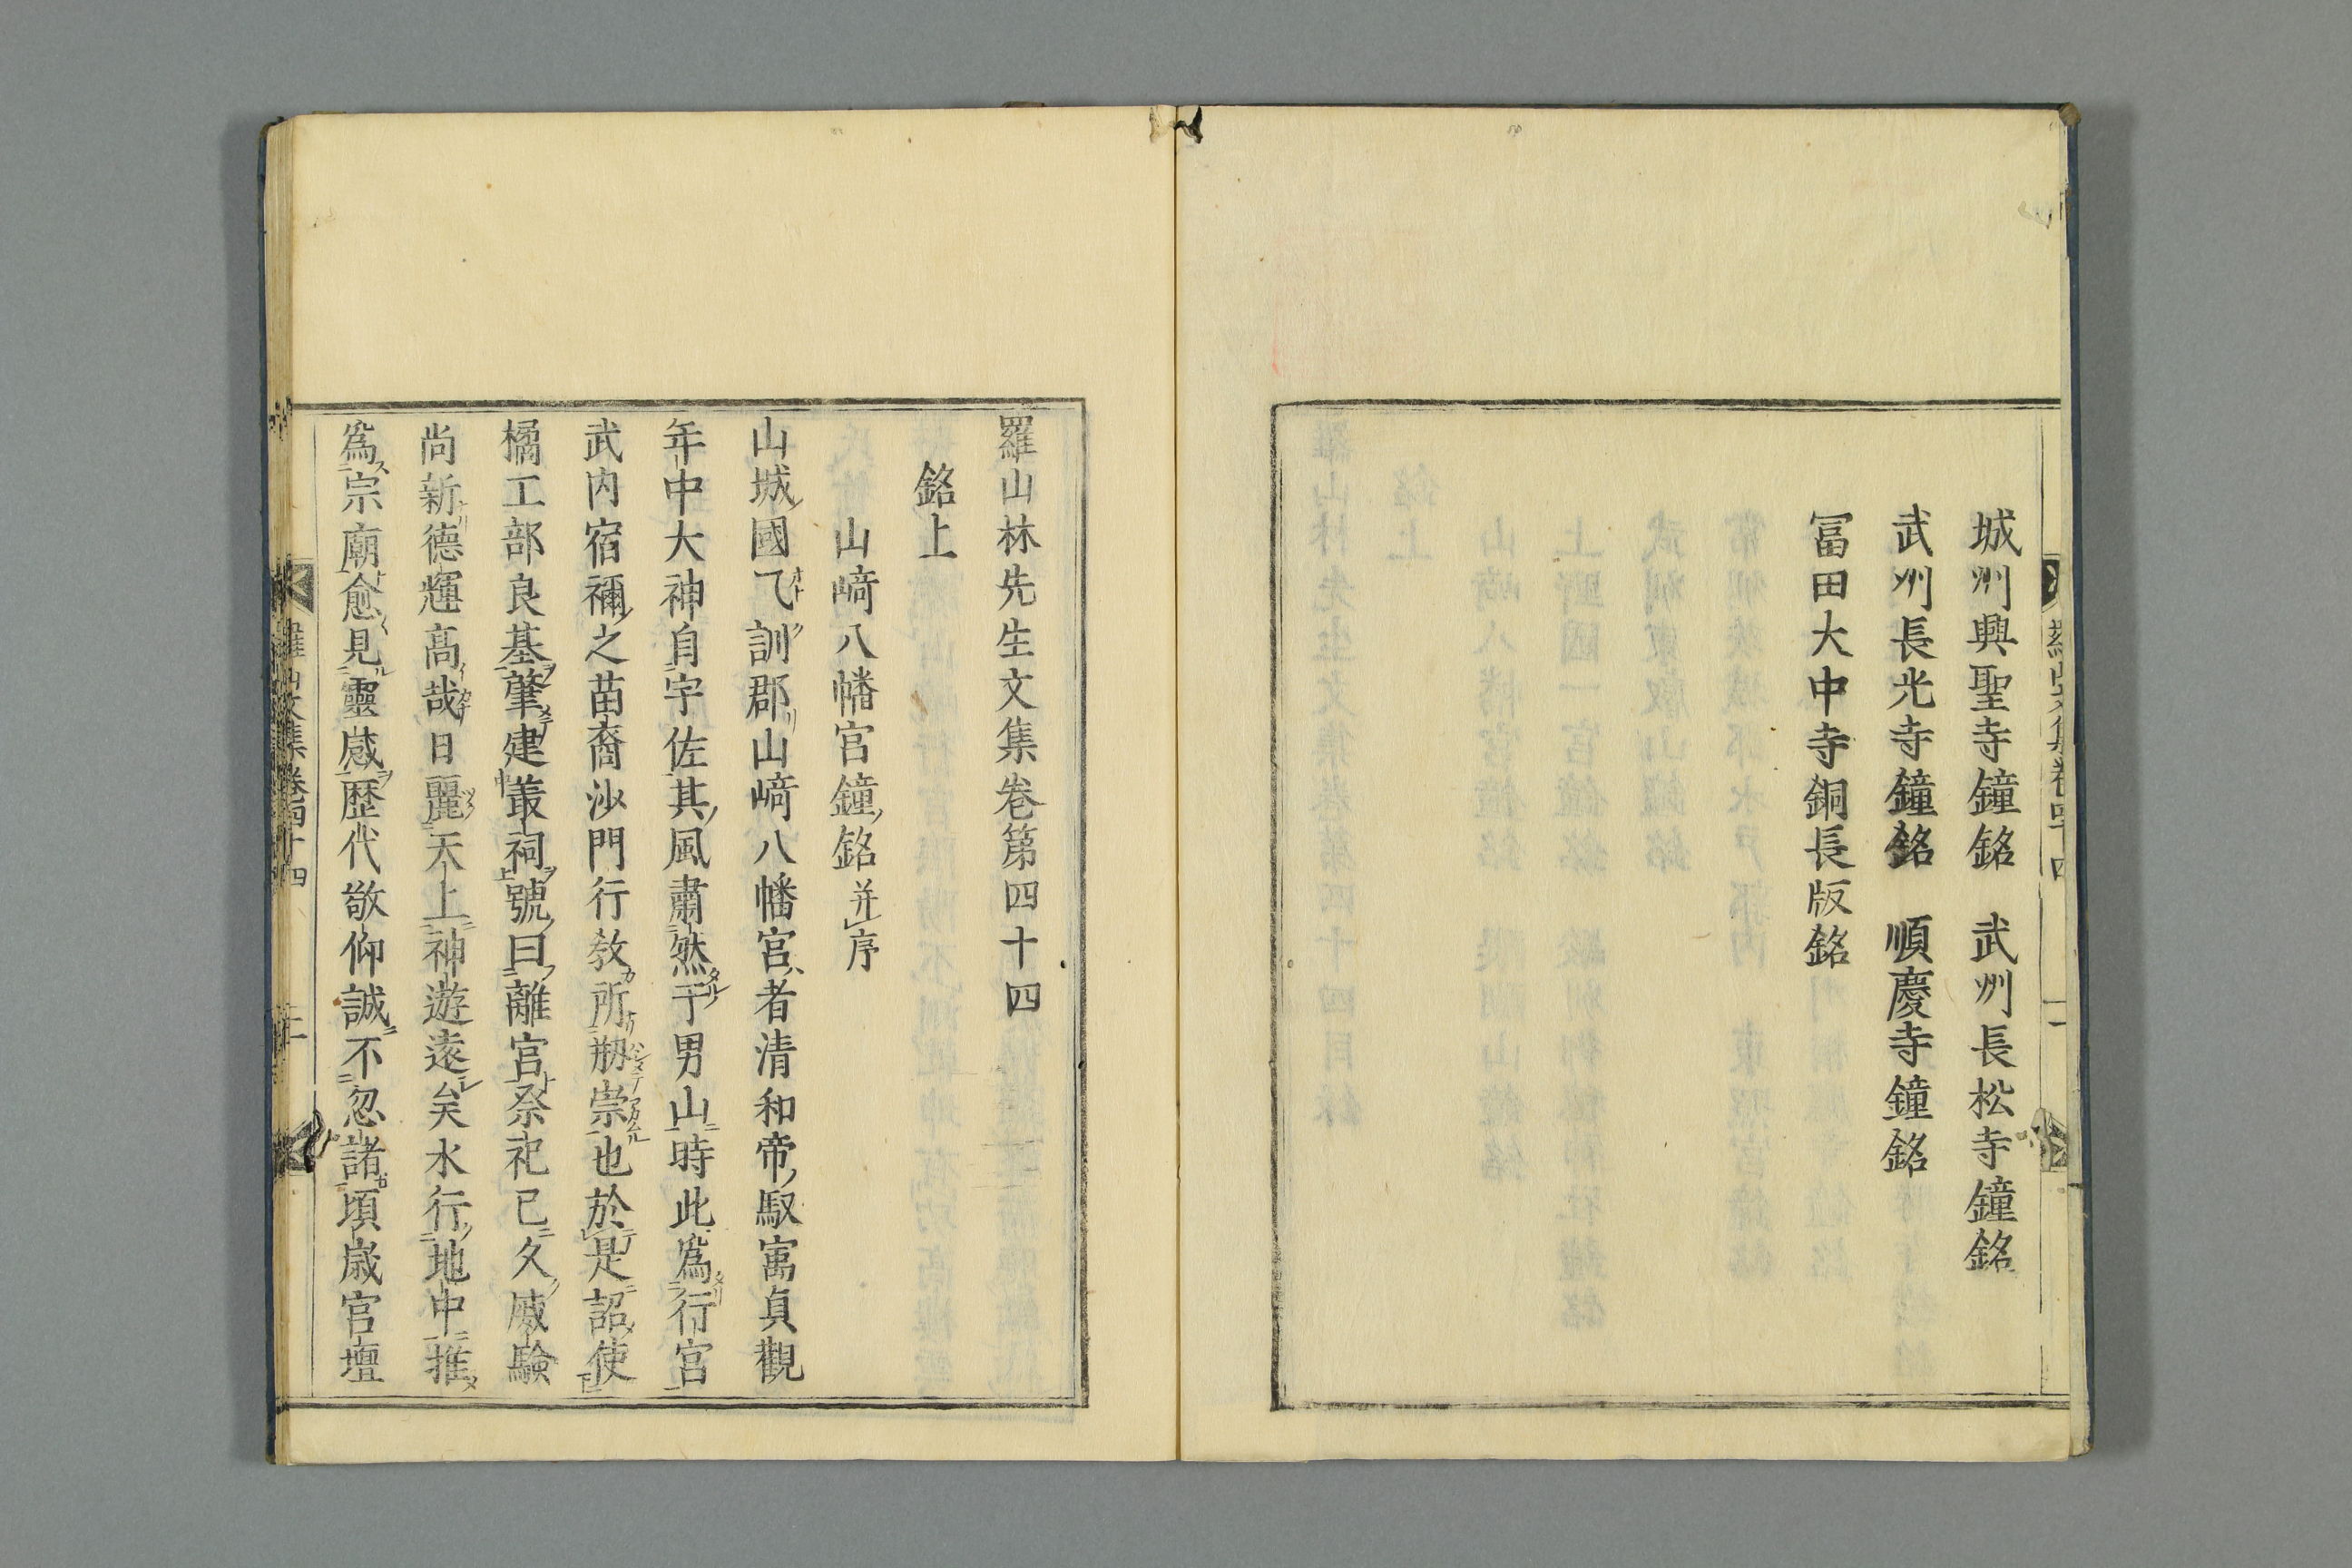 城州興聖寺鐘銘　武州長松寺鐘銘
武州長光寺鐘銘　順慶寺鐘銘
冨田大中寺銅長版銘
羅山林先生文集卷第四十四
銘上
山﨑八幡宮鐘銘并序
山城國乙訓郡山﨑八幡宮者清和帝馭寓貞觀
年中大神自宇佐其風肅然于男山時此爲行宮
武内宿禰之苗裔沙門行教所剏崇也於是詔使
橘工部良基肇建叢祠號曰離宮祭祀已久威驗
尚新德輝高哉日麗天上神遊遠矣水行地中推
爲宗廟愈見靈感歴代敬仰誠不忽諸頃歳宮壇
羅山文集卷四十四
二